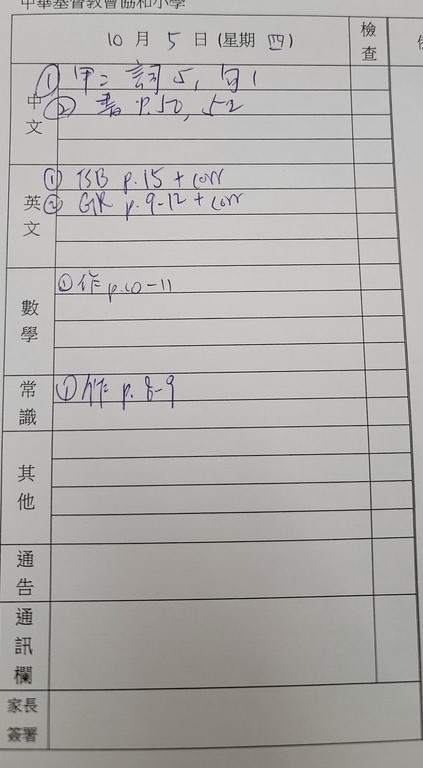 中華基督教會協和小學
10 月 5 日 (星期 四)
檢查
中文
① 甲: 詞 5, 句 1
② 書 p.50, 52
英文
① TSB p.15 + corr
② GR p.9-12 + corr
數學
① 作 p.10-11
常識
① 作 p.8-9
其他
通告
通訊欄
家長簽署